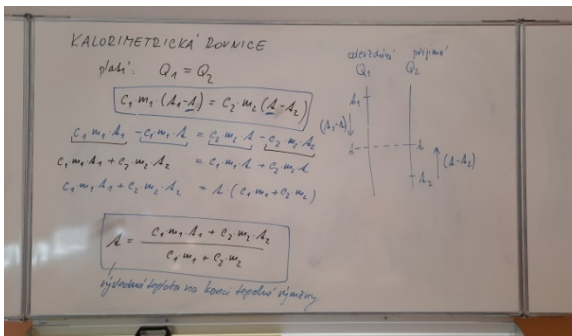 KALORIMETRICKÁ ROVNICE
platí: Q₁ = Q₂
c₁·m₁·(t₁-t) = c₂·m₂(t-t₂)
c₁·m₁·t₁ - c₁·m₁·t = c₂·m₂·t - c₂·m₂·t₂
c₁·m₁·t₁ + c₂·m₂·t₂ = c₁·m₁·t + c₂·m₂·t
c₁·m₁·t₁ + c₂·m₂·t₂ = t·(c₁·m₁+c₂·m₂)
t = c₁·m₁·t₁ + c₂·m₂·t₂
c₁·m₁ + c₂·m₂
výsledná teplota na konci tepelné výměny
přijímá
Q₁ Q₂
t₁
(t₁-t)
t t
(t-t₂)
t₂